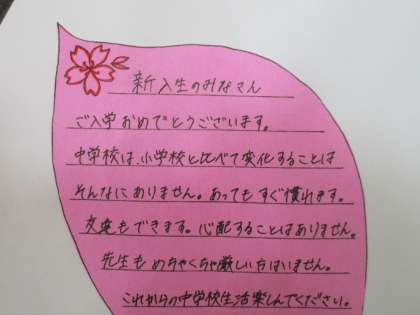 新入生のみなさん
ご入学おめでとうございます。
中学校は、小学校と比べて変化することは
そんなにありません。あってもすぐ慣れます。
友達もできます。心配することはありません。
先生もめちゃくちゃ厳しい方はいません。
これからの中学校生活楽しんでください。